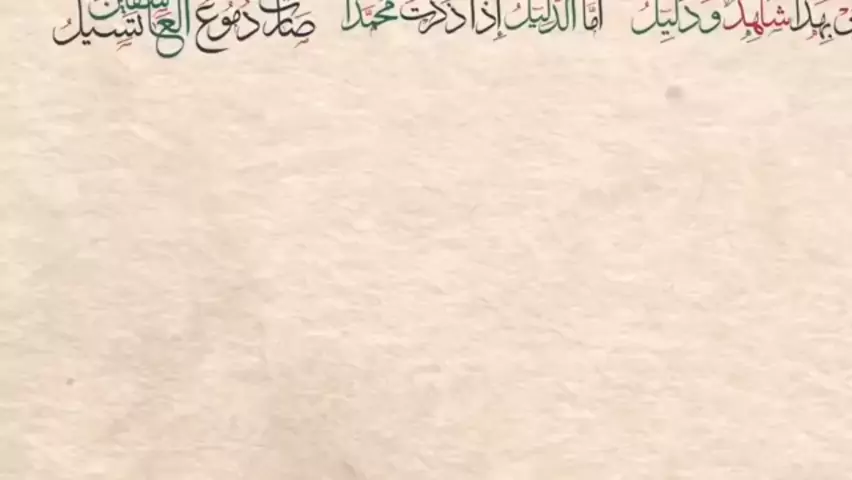 بِهَذَا شَاهِدٌ وَدَلِيلُ أَمَّا الدَّلِيلُ إِذَا ذَكَرْتَ مُحَمَّدًا صَارَتْ دُمُوعُ الْعَاشِقِينَ تَسِيلُ